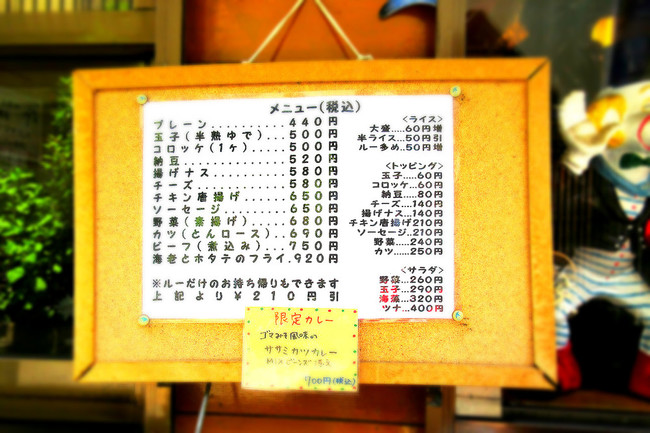 メニュー(税込)
プレーン..........440円
玉子(半熟ゆで)...500円
コロッケ(1ヶ).....500円
納豆.............520円
揚げナス..........580円
チーズ............580円
チキン唐揚げ.......650円
ソーセージ.........650円
野菜(素揚げ).......680円
カツ(とんロース)...690円
ビーフ(煮込み).....750円
海老とホタテのフライ.920円
※ルーだけのお持ち帰りもできます
上記より¥210円引
<ライス>
大盛.....60円増
半ライス...50円引
ルー多め..50円増
<トッピング>
玉子.....60円
コロッケ....60円
納豆.....80円
チーズ....140円
揚げナス...140円
チキン唐揚げ210円
ソーセージ..210円
野菜.....240円
カツ......250円
<サラダ>
野菜...260円
玉子...290円
海藻...320円
ツナ...400円
限定カレー
ゴマみそ風味の
ササミカツカレー
700円(税込)